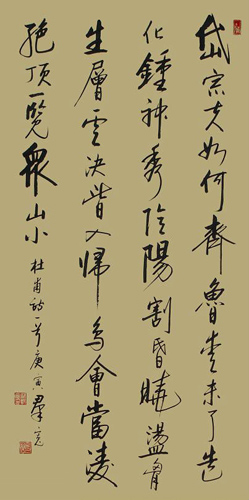 岱宗夫如何齊魯青未了造
化鍾神秀陰陽割昏曉盪胷
生層雲決眥入歸鳥會當凌
絕頂一覽衆山小 杜甫詩一首庚寅羣